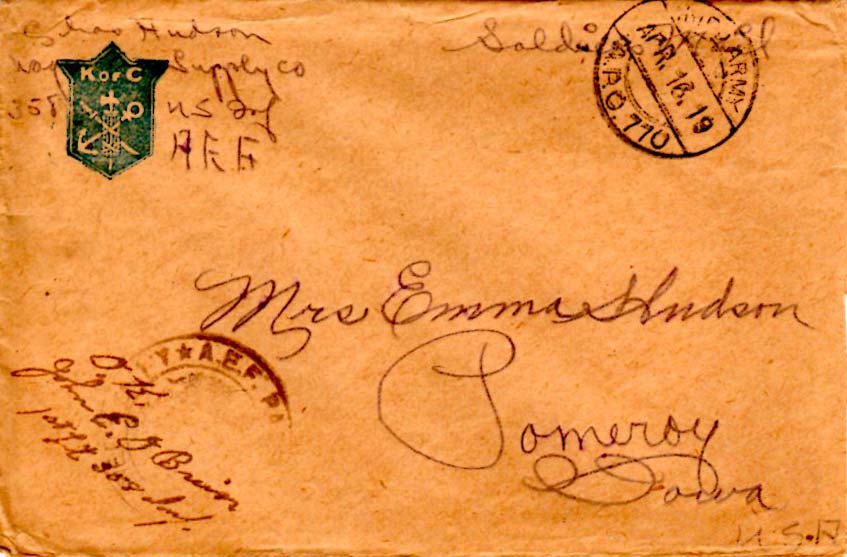 Chas Hudson
Supply Co
358 US Inf
A E F
K of C
Soldiers Mail
ARMY
APR. 16. 19
P.O. 770
Mrs Emma Hudson
Pomeroy
Iowa
U.S.A
Y ★ A.E.F. PA
O.K.
John E. O'Brien
1st Lt 358 Inf.